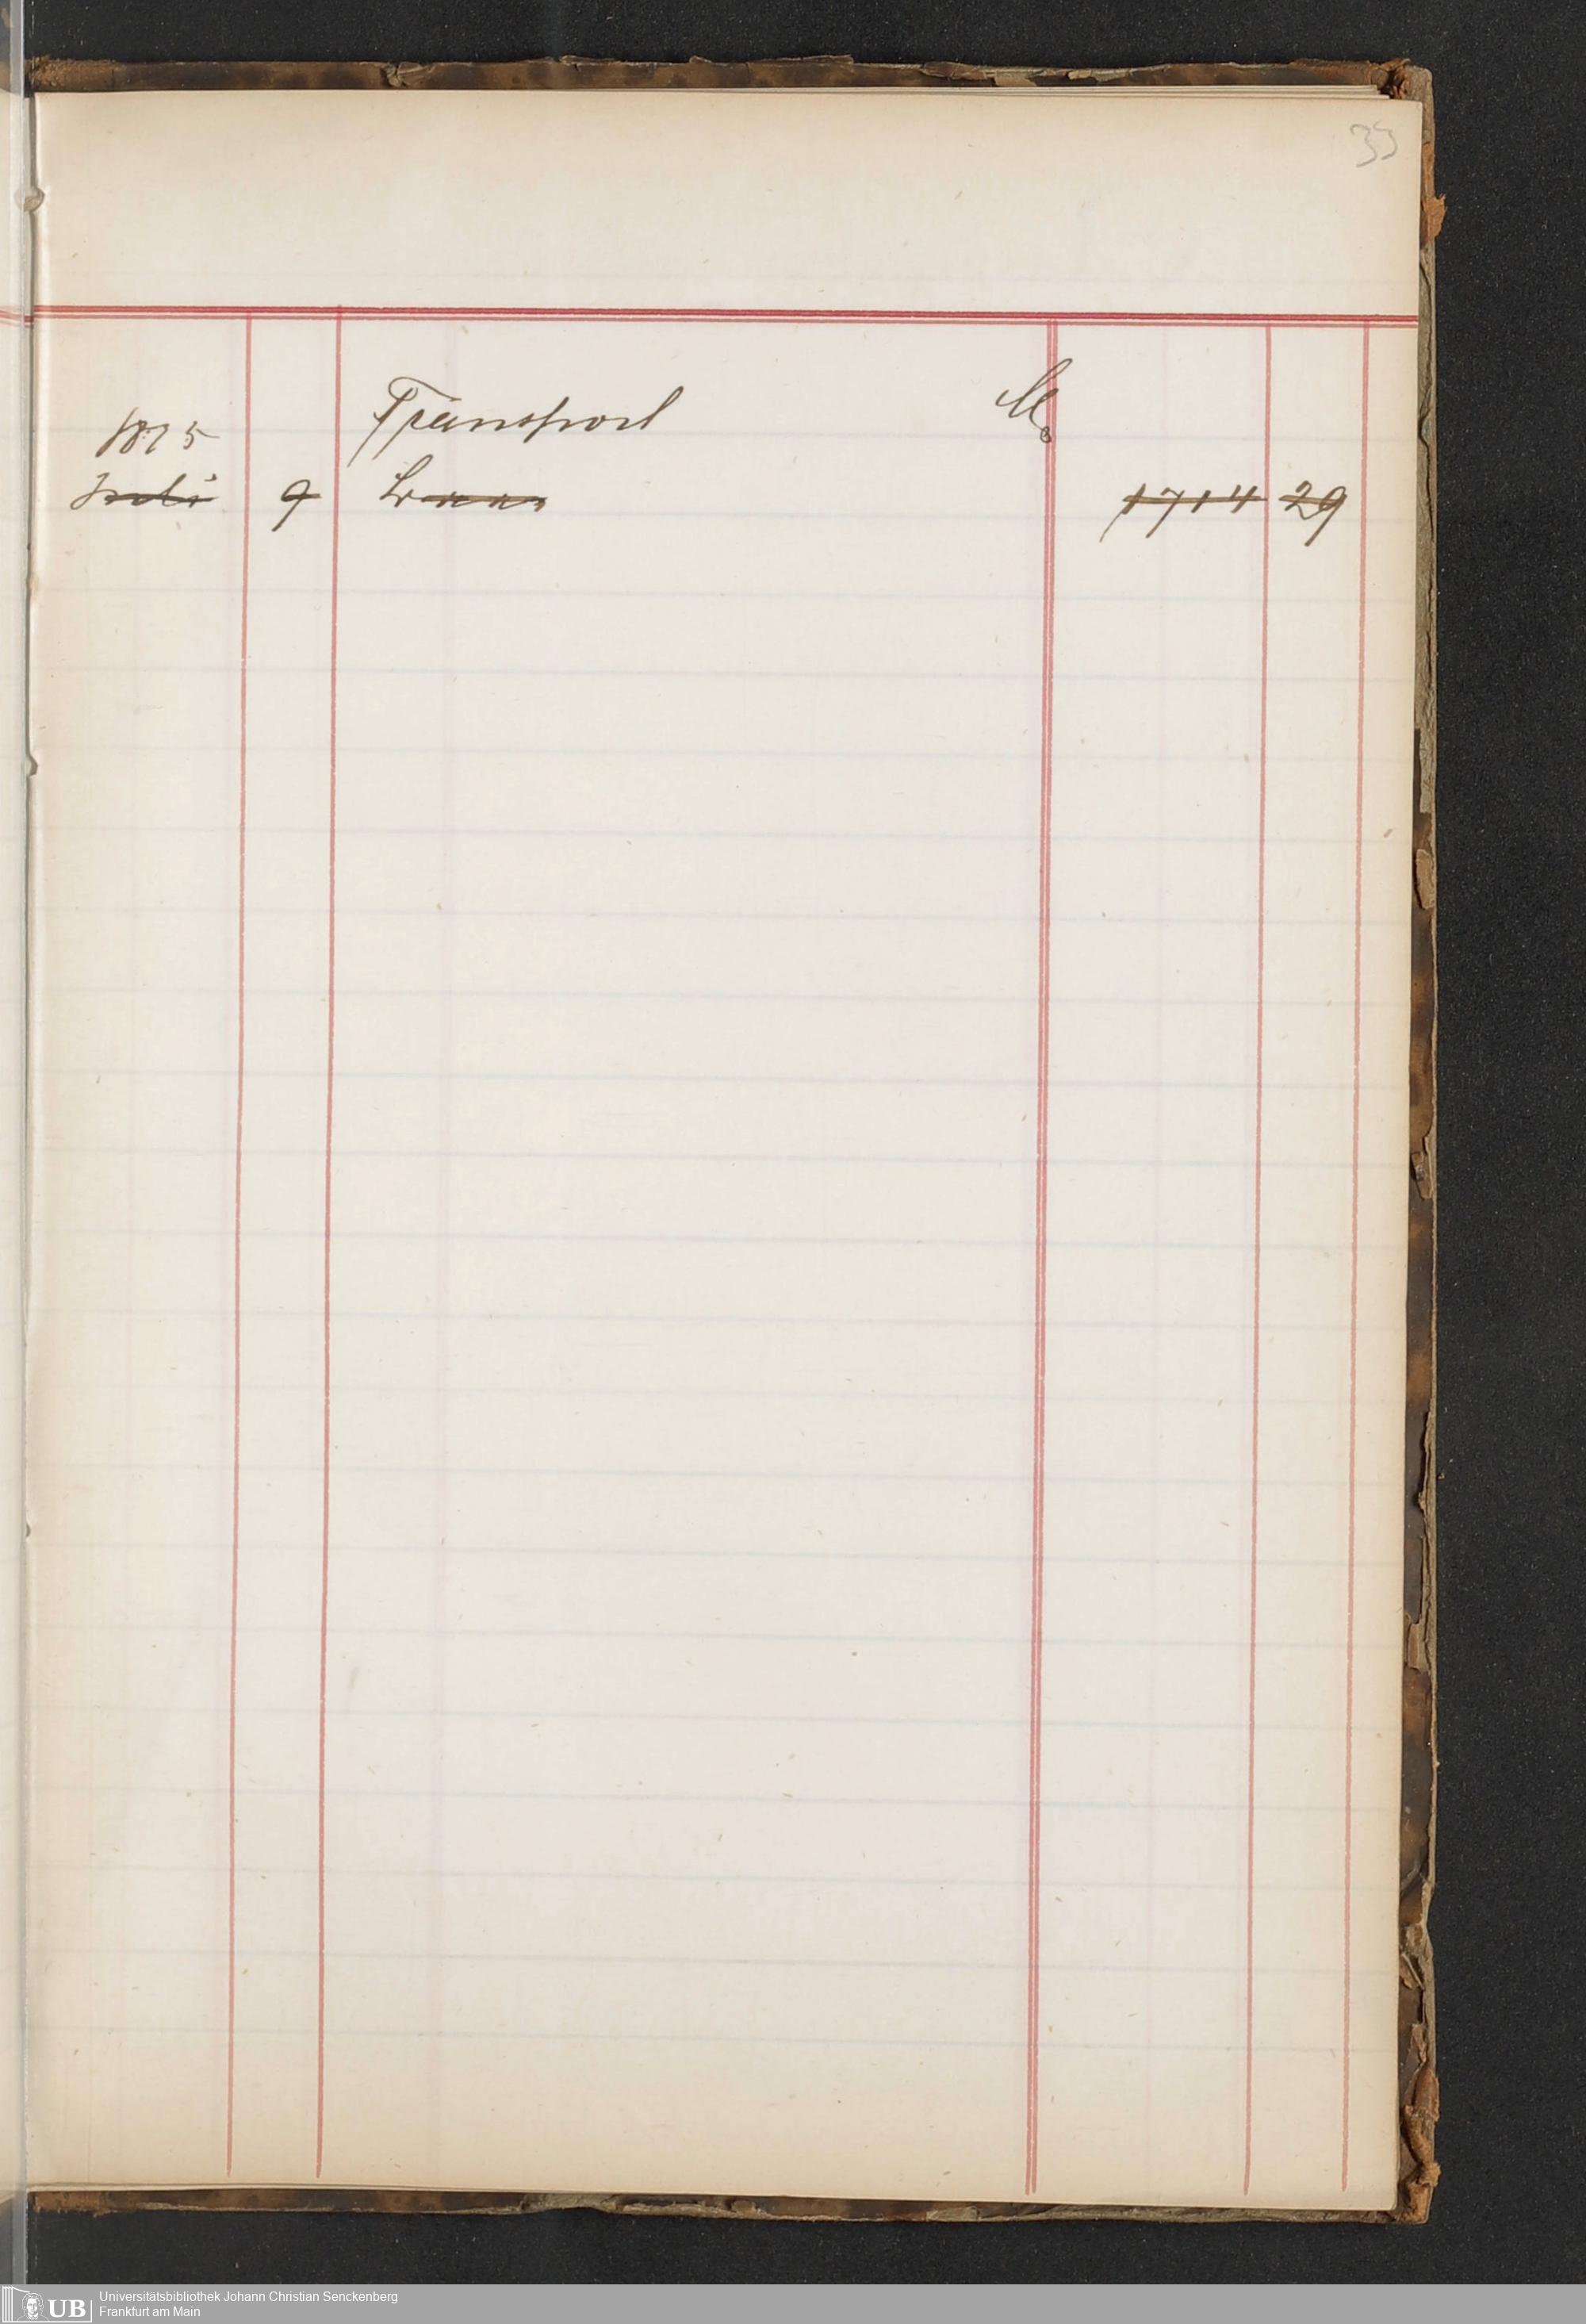 33
Transport M
1875
Juli 9 1714 29
UB Universitätsbibliothek Johann Christian Senckenberg
Frankfurt am Main